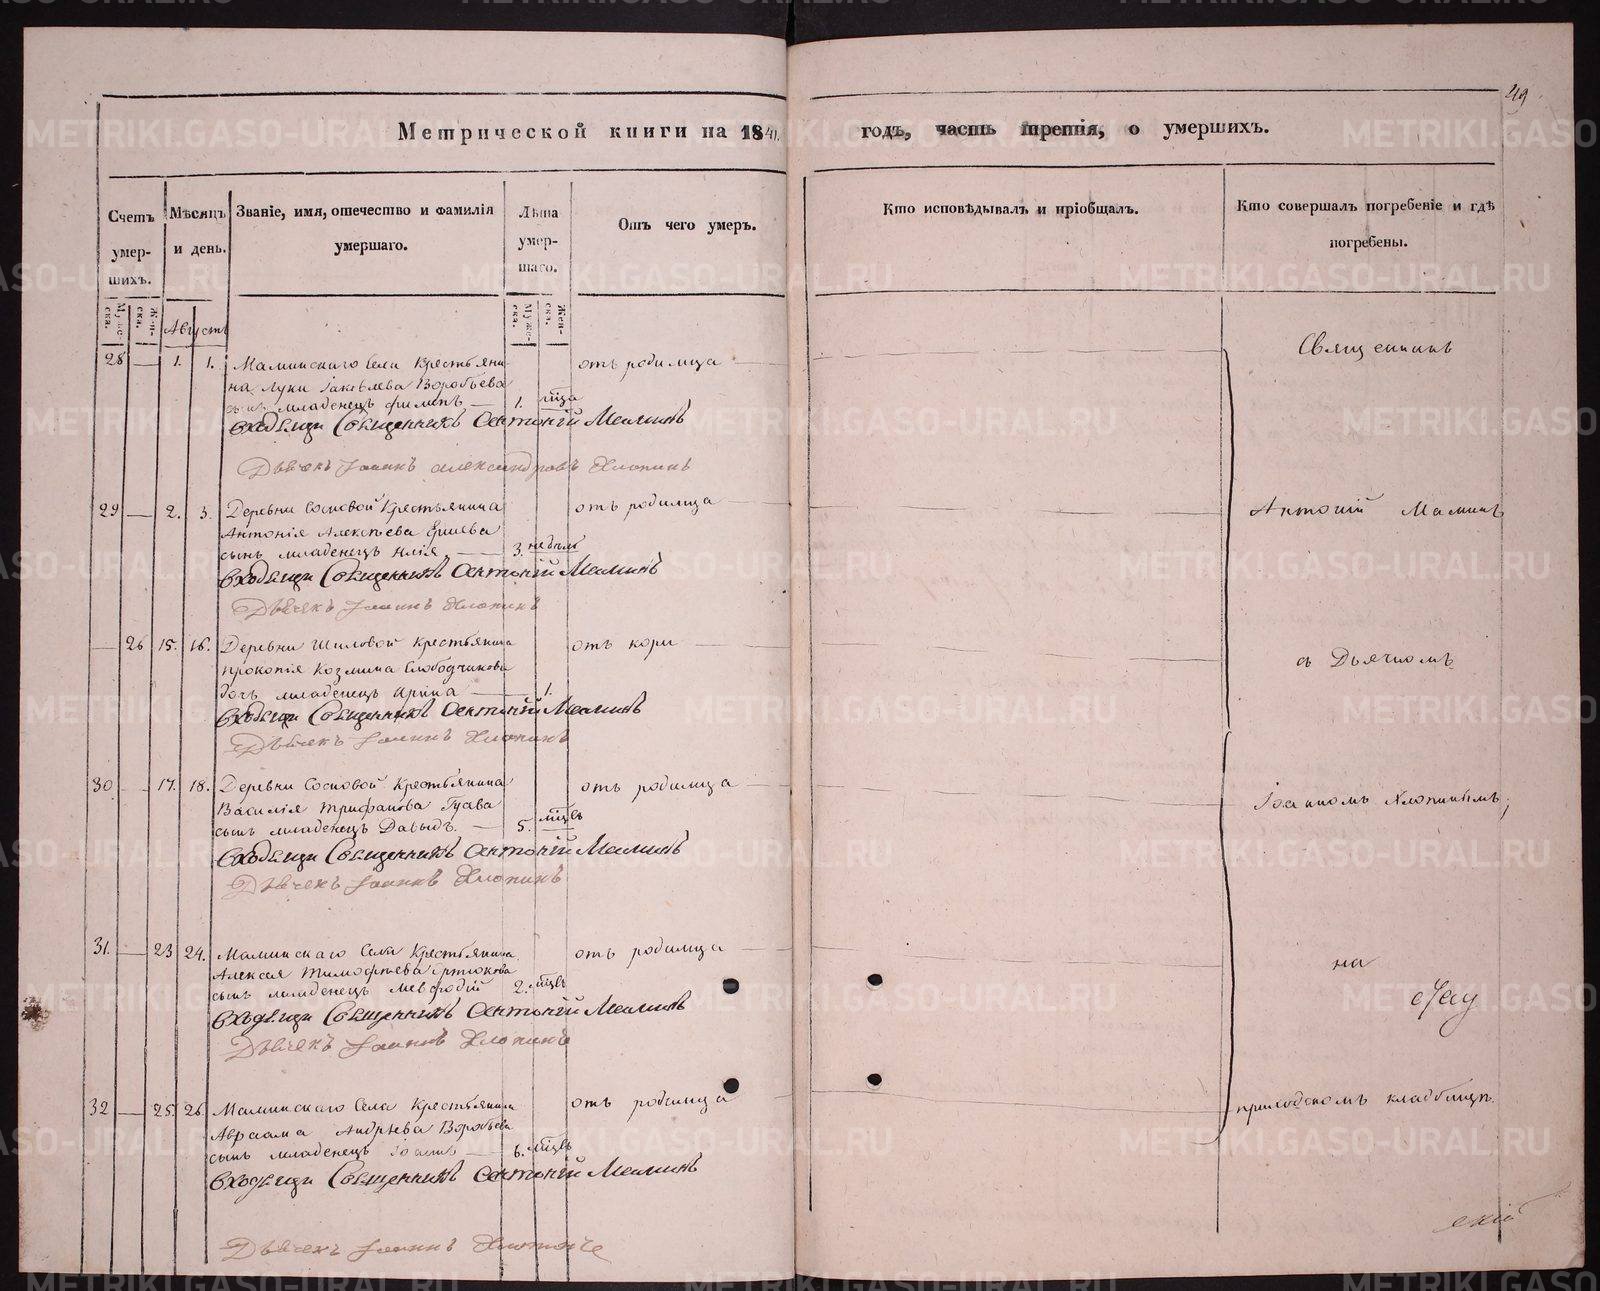 49
Метрической книги на 1841.
годъ, часть третія, о умершихъ.
Счетъ умер-шихъ.
Мѣсяцъ и день.
Званіе, имя, отечество и фамилія умершаго.
Лѣта умер-шаго.
Отъ чего умеръ.
Кто исповѣдывалъ и пріобщалъ.
Кто совершалъ погребеніе и гдѣ погребены.
Муж-ска.
Жен-ска.
Августъ
Муже-ска.
Жен-ска.
28 — 1. 1. Маминскаго Села Крестьяни- отъ родимца
на Луки Іаковлева Воробьева
сынъ младенецъ Филипъ — 1. мѣца
Священникъ Антоній Маминъ
Дьячекъ Іоаннъ Александровъ Хлопинъ
29 — 2. 3. Деревни Сосновой Крестьянина отъ родимца
Антонія Алексѣева
сынъ младенецъ Илія — 3. недѣль
Священникъ Антоній Маминъ
Дьячекъ Іоаннъ Хлопинъ
— 26 15. 16. Деревни Шиловой Крестьянина отъ кори
Прокопія Козмина Слободчикова
дочь младенецъ Ирина — 1.
Священникъ Антоній Маминъ
Дьячекъ Іоаннъ Хлопинъ
30 — 17. 18. Деревни Сосновой Крестьянина отъ родимца
Василія Трифанова Гусева
сынъ младенецъ Давыдъ. — 5. мѣцъ
Священникъ Антоній Маминъ
Дьячекъ Іоаннъ Хлопинъ
31. — 23 24. Маминскаго Села Крестьянина отъ родимца
Алексея Тимофѣева
сынъ младенецъ Меѳодій 2. мѣцъ
Священникъ Антоній Маминъ
Дьячекъ Іоаннъ Хлопинъ
32 — 25. 26. Маминскаго Села Крестьянина отъ родимца
Авраама Андрѣева Воробьева
сынъ младенецъ Іоаннъ — 6. мѣцъ
Священникъ Антоній Маминъ
Дьячекъ Іоаннъ
Священникъ
Антоній Маминъ
съ Дьячкомъ
Іоанномъ Хлопинымъ,
на
приходскомъ кладбищѣ.
METRIKI.GASO-URAL.RU